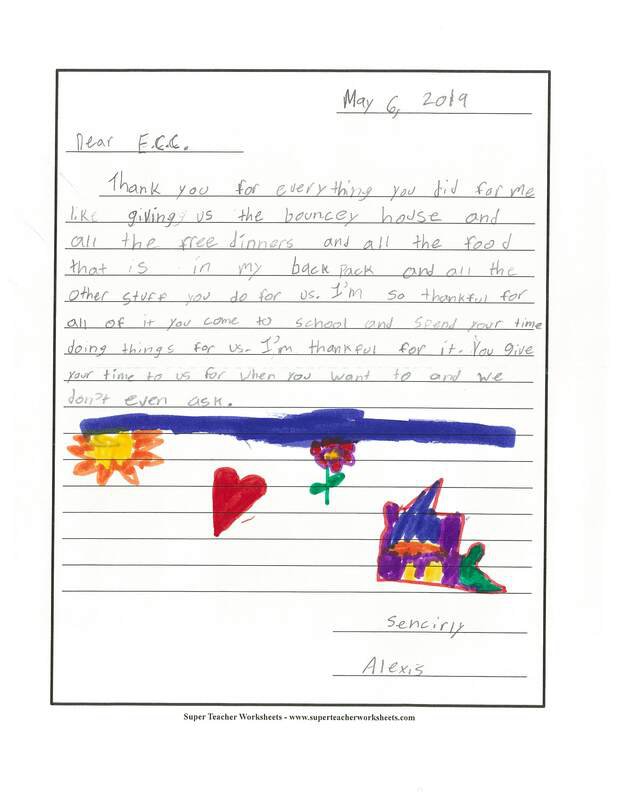 May 6, 2019
Dear E.C.C.
Thank you for everything you did for me
like giving us the bouncey house and
all the free dinners and all the food
that is in my back pack and all the
other stuff you do for us. I'm so thankful for
all of it you come to school and spend your time
doing things for us. I'm thankful for it. You give
your time to us for when you want to and we
don't even ask.
Sencirly
Alexis
Super Teacher Worksheets - www.superteacherworksheets.com